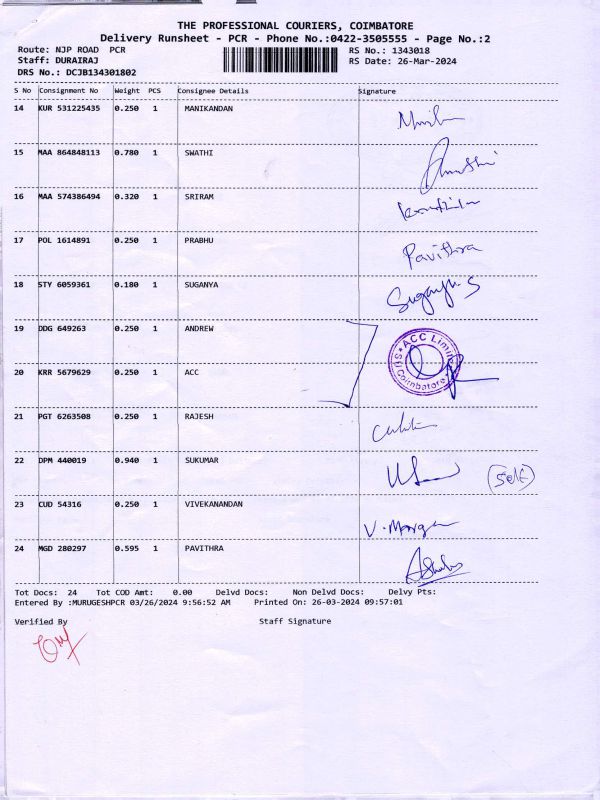 THE PROFESSIONAL COURIERS, COIMBATORE
Delivery Runsheet - PCR - Phone No.:0422-3505555 - Page No.:2
Route: NJP ROAD PCR RS No.: 1343018
Staff: DURAIRAJ RS Date: 26-Mar-2024
DRS No.: DCJB134301802
S No Consignment No Weight PCS Consignee Details Signature
14 KUR 531225435 0.250 1 MANIKANDAN
15 MAA 864848113 0.780 1 SWATHI
16 MAA 574386494 0.320 1 SRIRAM
17 POL 1614891 0.250 1 PRABHU Pavithra
18 STY 6059361 0.180 1 SUGANYA Suganya. S
19 DDG 649263 0.250 1 ANDREW
ACC Limited
Coimbatore
20 KRR 5679629 0.250 1 ACC
21 PGT 6263508 0.250 1 RAJESH
22 DPM 440019 0.940 1 SUKUMAR (Self)
23 CUD 54316 0.250 1 VIVEKANANDAN
24 MGD 280297 0.595 1 PAVITHRA
Tot Docs: 24 Tot COD Amt: 0.00 Delvd Docs: Non Delvd Docs: Delvy Pts:
Entered By :MURUGESHPCR 03/26/2024 9:56:52 AM Printed On: 26-03-2024 09:57:01
Verified By Staff Signature